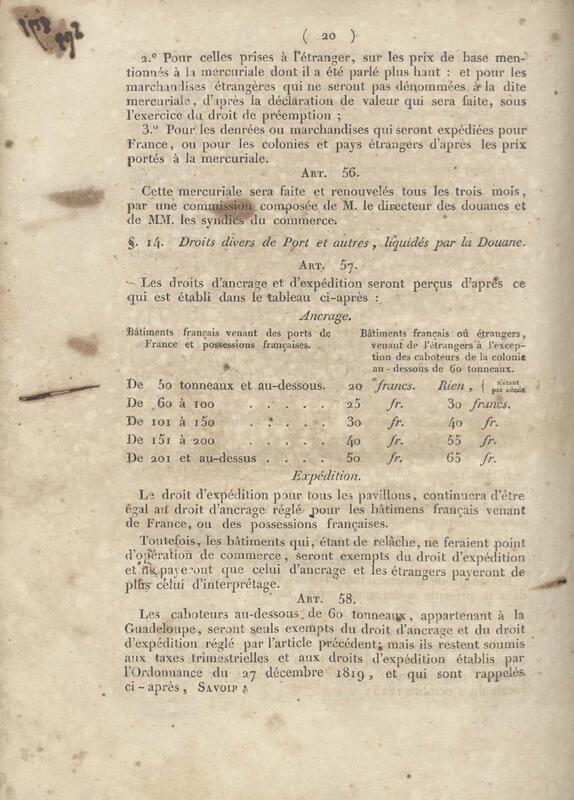 ( 20 )
2.º Pour celles prises à l'étranger, sur les prix de base men-
tionnés à la mercuriale dont il a été parlé plus haut : et pour les
marchandises étrangères qui ne seront pas dénommées à la dite
mercuriale, d'après la déclaration de valeur qui sera faite, sous
l'exercice du droit de préemption ;
3.º Pour les denrées ou marchandises qui seront expédiées pour
France, ou pour les colonies et pays étrangers d'après les prix
portés à la mercuriale.
ART. 56.
Cette mercuriale sera faite et renouvelés tous les trois mois,
par une commission composée de M. le directeur des douanes et
de MM. les syndics du commerce.
§. 14. Droits divers de Port et autres, liquidés par la Douane.
ART. 57.
Les droits d'ancrage et d'expédition seront perçus d'après ce
qui est établi dans le tableau ci-après :
Ancrage.
Bâtiments français venant des ports de
France et possessions françaises.
Bâtiments français où étrangers,
venant de l'étrangers à l'excep-
tion des caboteurs de la colonie
au-dessous de 60 tonneaux.
De 50 tonneaux et au-dessous. 20 francs. Rien, { n'étant pas admis.
De 60 à 100 . . . . . 25 fr. 30 francs.
De 101 à 150 . . . . . 30 fr. 40 fr.
De 151 à 200 . . . . . 40 fr. 55 fr.
De 201 et au-dessus . . . . 50 fr. 65 fr.
Expédition.
Le droit d'expédition pour tous les pavillons, continuera d'être
égal au droit d'ancrage réglé pour les bâtimens français venant
de France, ou des possessions françaises.
Toutefois, les bâtiments qui, étant de relâche, ne feraient point
d'opération de commerce, seront exempts du droit d'expédition
et ne payeront que celui d'ancrage et les étrangers payeront de
plus celui d'interprêtage.
ART. 58.
Les caboteurs au-dessous de 60 tonneaux, appartenant à la
Guadeloupe, seront seuls exempts du droit d'ancrage et du droit
d'expédition réglé par l'article précédent; mais ils restent soumis
aux taxes trimestrielles et aux droits d'expédition établis par
l'Ordonnance du 27 décembre 1819, et qui sont rappelés
ci-après, SAVOIR :